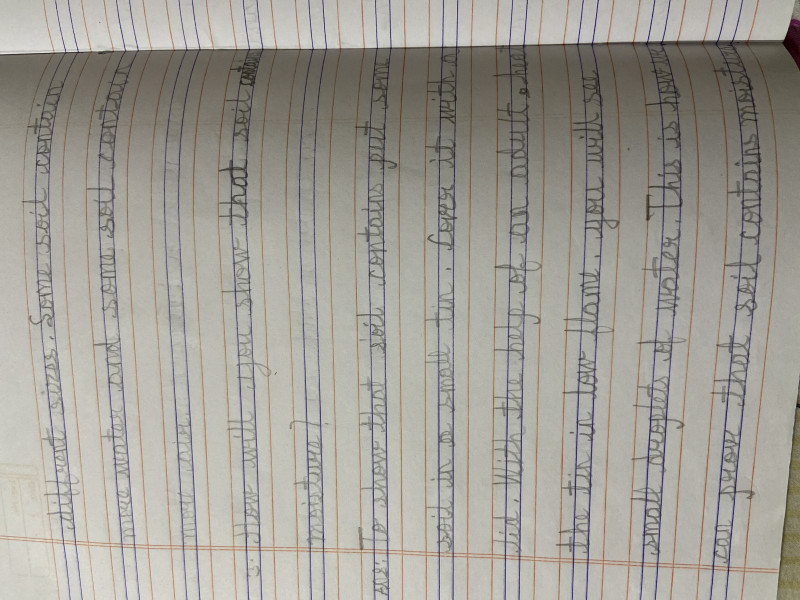 different sizes. Some soil contain
more water and some soil contain
more air.
: How will you show that soil contain
moisture?
Ans: To show that soil contains put some
soil in a small tin. Cover it with a
lid. With the help of an adult, heat
the tin in low flame. you will see
small droplets of water. This is how we
can prove that soil contains moisture